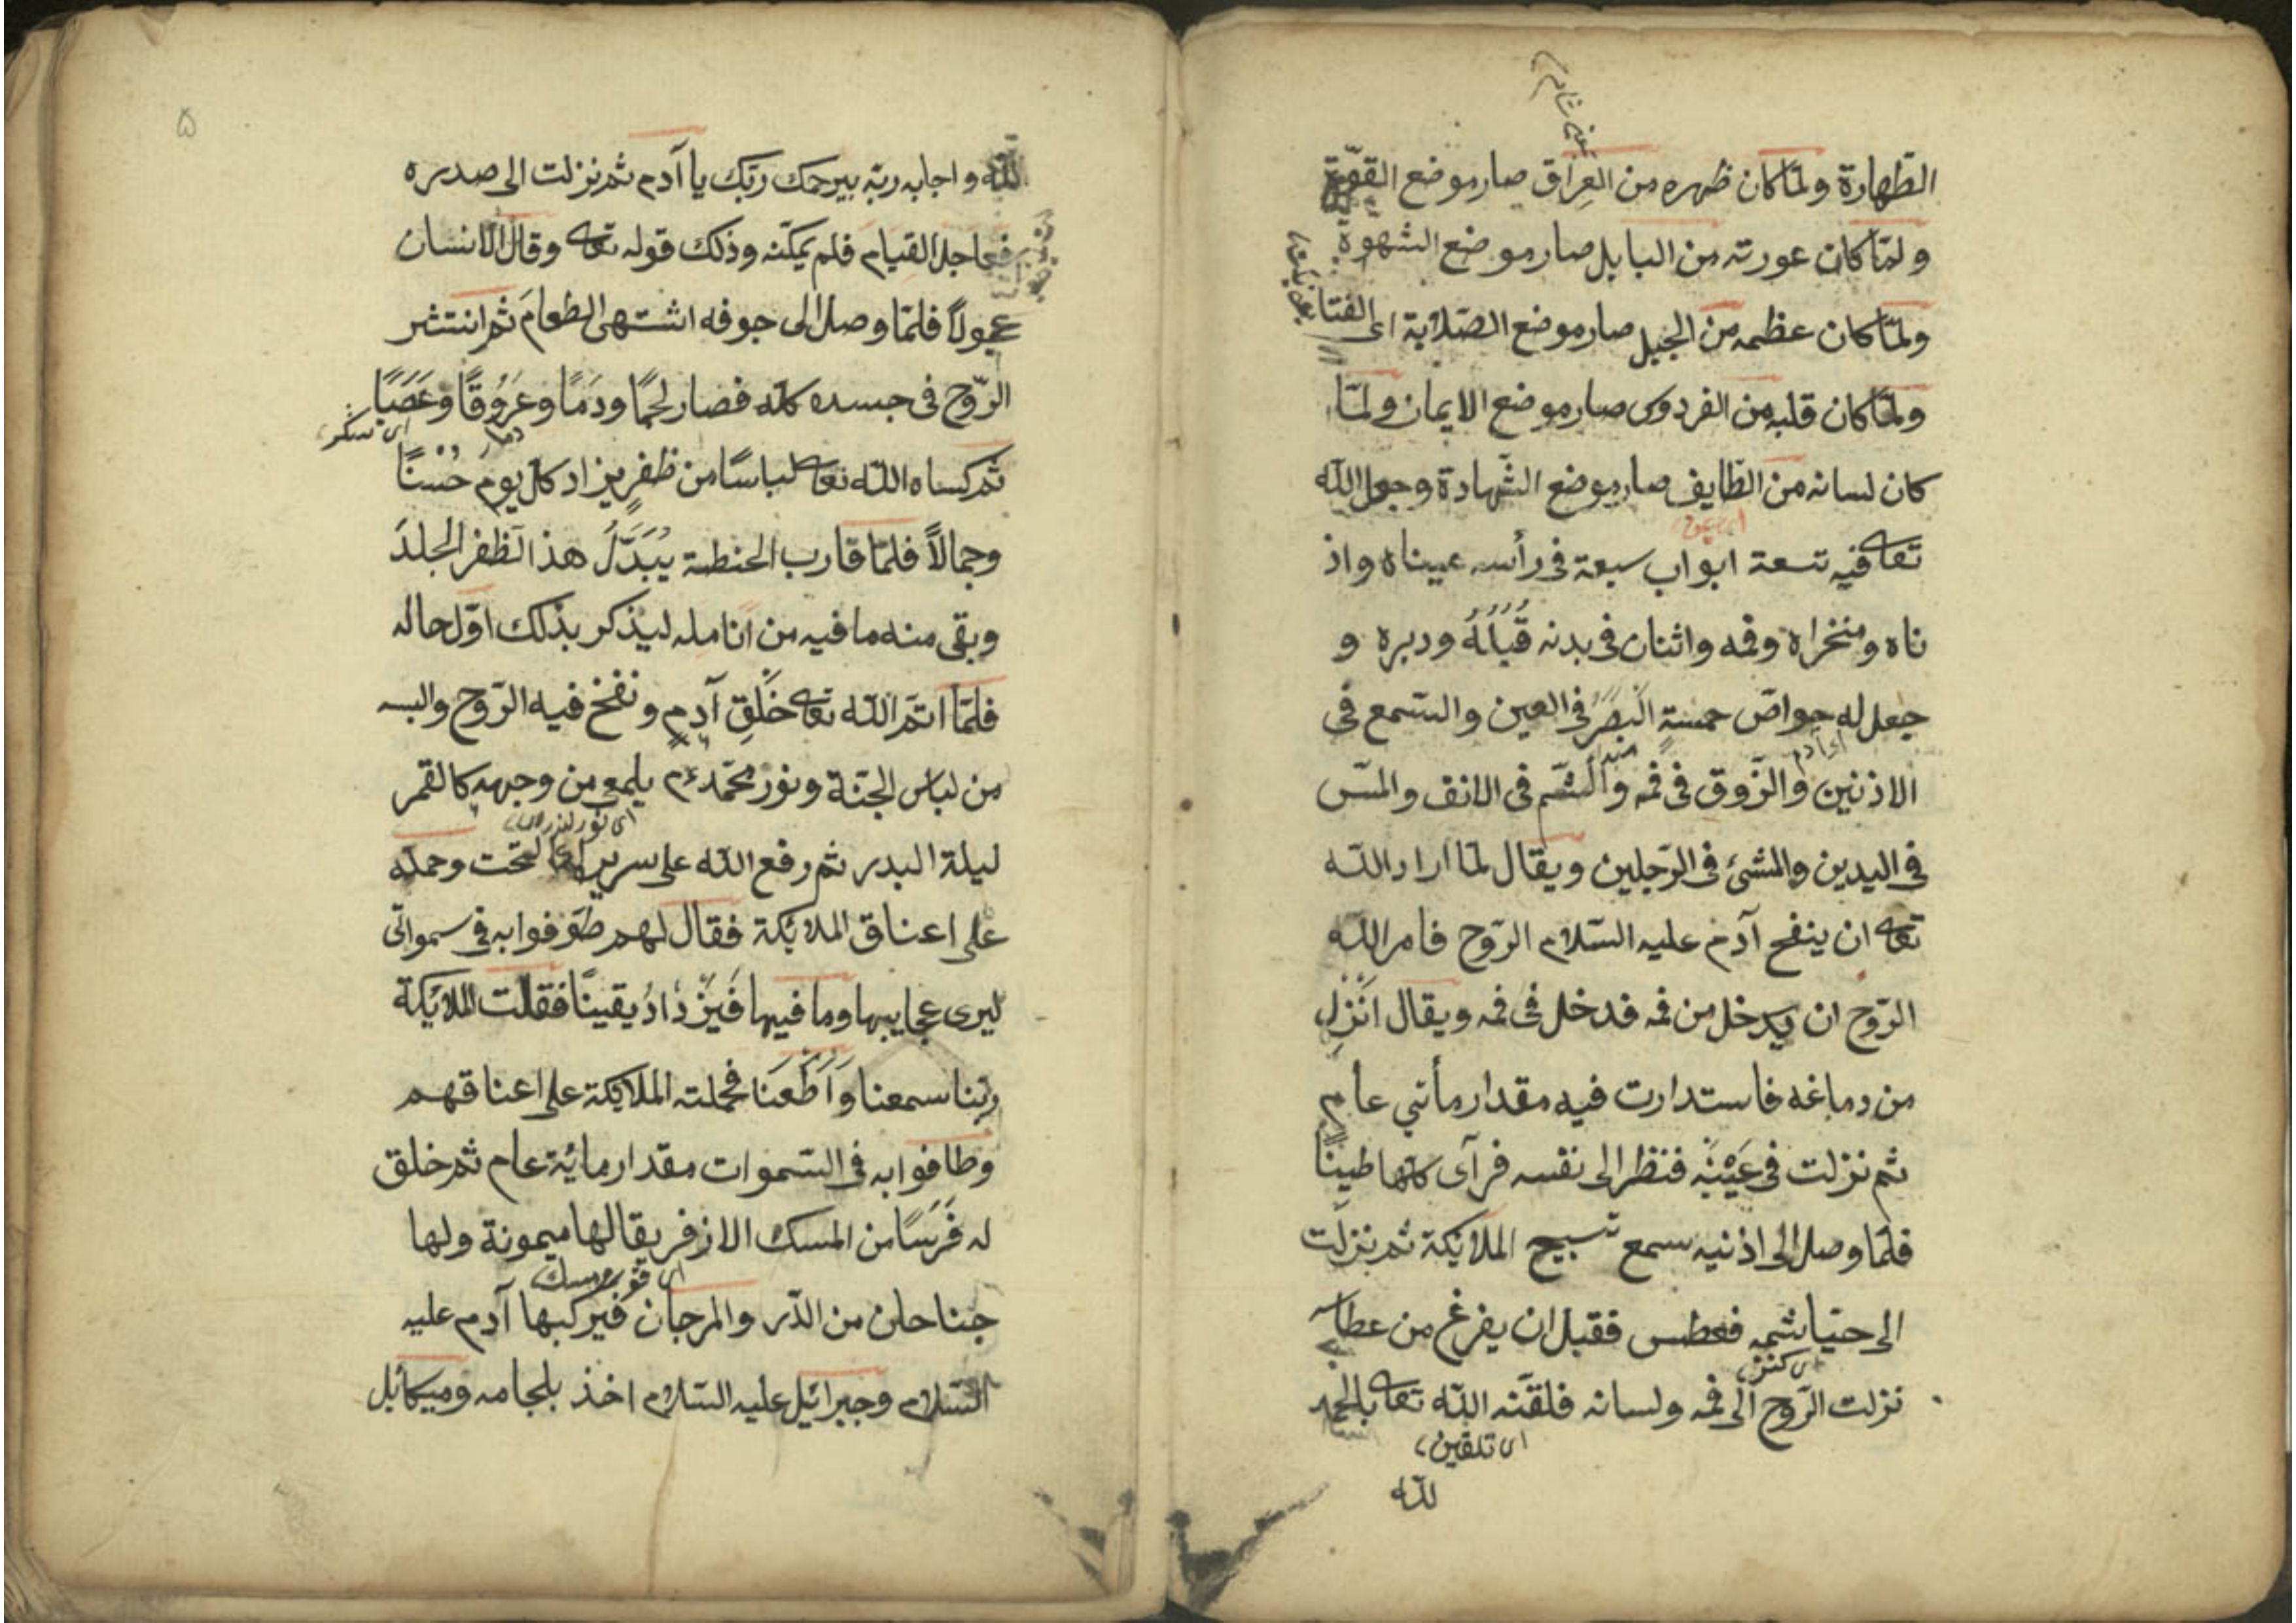 الطّهارة ولمّا كان ظهره من العِراق صار موضع القوّة
ولمّا كان عورته من البابل صار موضع الشهوة
ولمّا كان عظمه من الجبل صار موضع الصّلابة اى
ولمّا كان قلبه من الفردوس صار موضع الايمان ولمّا
كان لسانه من الطّايف صار موضع الشّهادة وجعل الله
تعا فيه تسعة ابواب سبعة فى رأسه عيناه واذ
ناه ومنخراه وفمه واثنان فى بدنه قُبُلُهُ ودبره و
جعل له حواصّ خمسةٍ اَلْبَصَرُ فى العين والسّمع فى
اى آدم
الاذنين والذّوق فى فمه والشّم فى الانف والمسّ
فى اليدين والمشئ فى الرّجلين ويقال لمّا اراد الله
تعا ان ينفح آدم عليه السّلام الرّوح فامر الله
الرّوح ان يدخل من فمه فدخل فى فمه ويقال اَنْزِلِ
من دماغه فاستدارت فيه مقدار مأتي عام
ثم نزلت فى عَيْنَيْه فنظر الى نفسه فرآى كلّها طينًا
فلمّا وصل الى اذنيه سمع تسبيح الملائكة ثم نزلت
الى حياشمه فعطس فقبل ان يفرغ من عطاسه
نزلت الرّوح الى فمه ولسانه فلقّنه الله تعا بالحمد
اى تلقين
لله
۵
لله واجابه ربّه بيرحمك ربّك يا آدم ثم نزلت الى صدره
فعاجل القيام فلم يمكّنه وذلك قوله تعا وقال الانسان
عجولاً فلمّا وصل الى جوفه اشتهى الطعامَ ثم انتثر
الرّوح فى جسده كلّه فصار لحمًا ودَمًا وعَرُوُقًا وعَصَبًا
اى سكر
ثم كساه الله تعا لباسًا من ظفرٍ يزاد كلّ يوم حُسْنًا
وجمالاً فلمّا قارب الحنطة يُبَدَّلُ هذا الظفر الجلدَ
وبقى منه ما فيه من انامله ليذكر بذلك اوّل حاله
فلمّا اتمّ الله تعا خَلْقِ آدم ونفخ فيه الرّوح والبسه
من لباس الجنّة ونور محمّد عم يلمع من وجهه كالقمر
ليلة البدر ثم رفع الله على سرير اى تحت وحمله
على اعناق الملائكة فقال لهم طوّفوا به فى سمواتى
ليرى عجايبها وما فيها فَيَزْدَادُ يقينًا فقالت الملائكة
ربّنا سمعنا وَاَطَعْنَا فحملته الملائكة على اعناقهم
وطافوا به فى السّموات مقدار مائة عام ثم خلق
له فَرَسًا من المسك الاذفر يقال لها ميمونة ولها
جناحان من الدّر والمرجان فيركبها آدم عليه
السّلام وجبرائيل عليه السّلام اخذ بلجامه وميكائيل